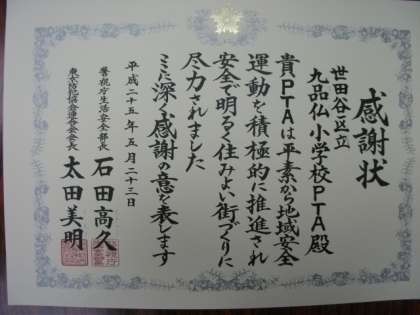 感謝状
世田谷区立
九品仏小学校PTA殿
貴PTAは平素から地域安全
運動を積極的に推進され
安全で明るく住みよい街づくりに
尽力されました
ここに深く感謝の意を表します
平成二十五年五月二十三日
警視庁生活安全部長
石田高久
東京防犯協会連合会会長
太田美明